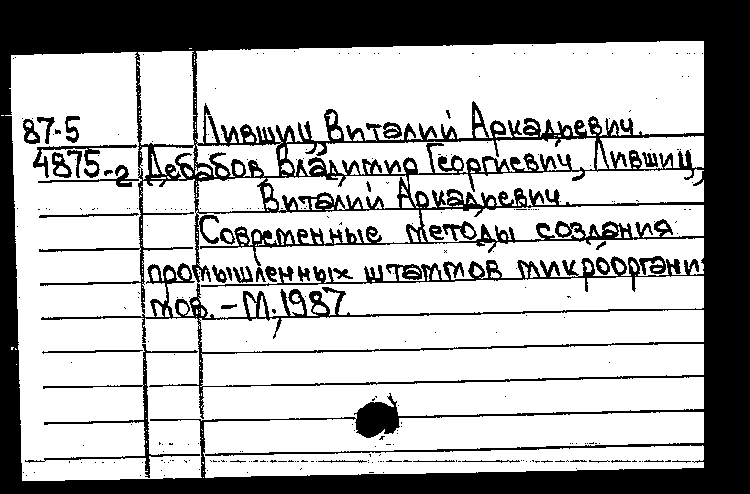 87-5 Лившиц, Виталий Аркадьевич.
4875-2 Дебабов, Владимир Георгиевич, Лившиц,
Виталий Аркадьевич.
Современные методы создания
промышленных штаммов микроорганиз
мов. – М., 1987.